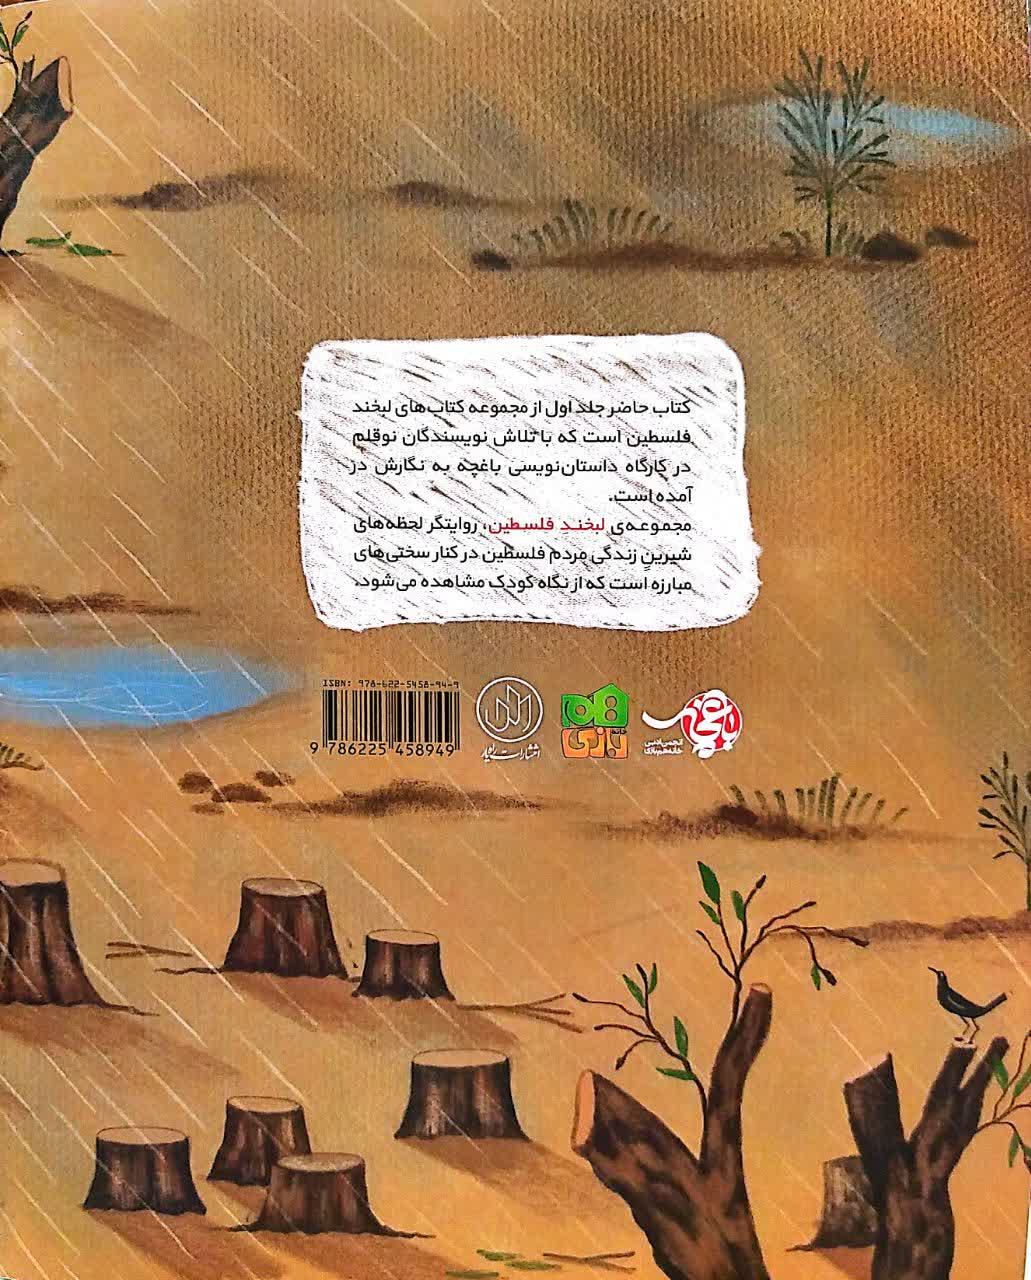 کتاب حاضر جلد اول از مجموعه کتاب‌های لبخند
فلسطین است که با تلاش نویسندگان نوقلم
در کارگاه داستان‌نویسی باغچه به نگارش در
آمده است.
مجموعه‌ی لبخندِ فلسطین، روایتگر لحظه‌های
شیرینِ زندگی مردم فلسطین در کنار سختی‌های
مبارزه است که از نگاه کودک مشاهده می‌شود.
ISBN: 978-622-5458-94-9
9 786225 458949
انتشارات راه‌یار
هم
بازی
انجمن ادبی
خانه هم‌بازی